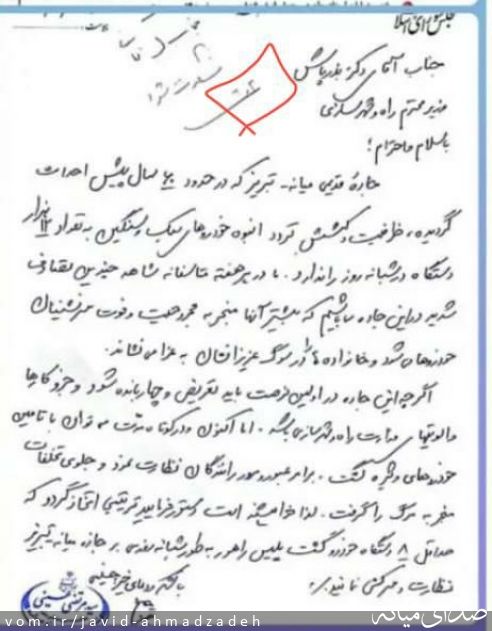 مجلس شورای اسلامی
جناب آقای دکتر بذرپاش
وزیر محترم راه و شهرسازی
باسلام و احترام؛
جادهٔ قدیمی میانه - تبریز که در حدود ۶۰ سال پیش احداث
گردیده، ظرفیت و کشش تردد انبوه خودروهای سبک و سنگین به تعداد ۱۲ هزار
دستگاه در شبانه روز را ندارد. ما در هر هفته متاسفانه شاهد چندین تصادف
شدید در این جاده میباشیم که بیشتر آنها منجر به مجروحیت و فوت سرنشینان
خودروهای شود و خانواده ها را در سوگ عزیزانشان به عزا می نشاند.
اگر چه این جاده در اولین فرصت باید تعریض و چهاربانده شود و جزو کارها
و اولویتهای وزارت راه و شهرسازی باشد. اما اکنون و در کوتاه مدت می توان با تامین
خودروهای گشت، برامر عبور و مرور رانندگان نظارت نمود و جلوی تخلفات
منجر به مرگ را گرفت. لذا خواهشمند است دستور فرمایید ترتیبی اتخاذ گردد که
حداقل ۸ دستگاه خودرو گشت پلیس راهور به طور شبانه روزی بر جاده میانه تبریز
نظارت و سرکشی نمایند.
با تشکر و دعای خیر
vom.ir/javid-ahmadzadeh
صدای میانه